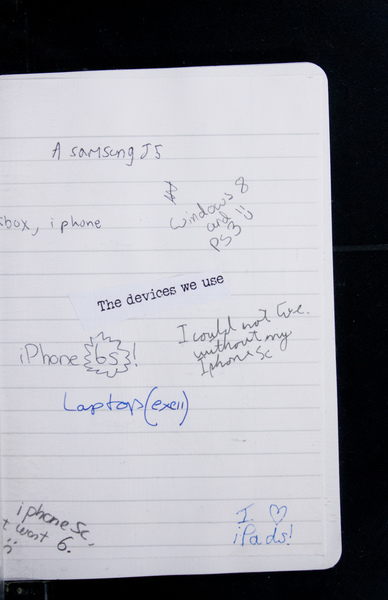 A samsung J5
windows 8
and
PS3 :)
xbox, iphone
The devices we use
I could not live
without my
Iphone 5c
iPhone 6S!
Laptop(exell)
iphone 5c.
t want 6.
I ♡
iPads!